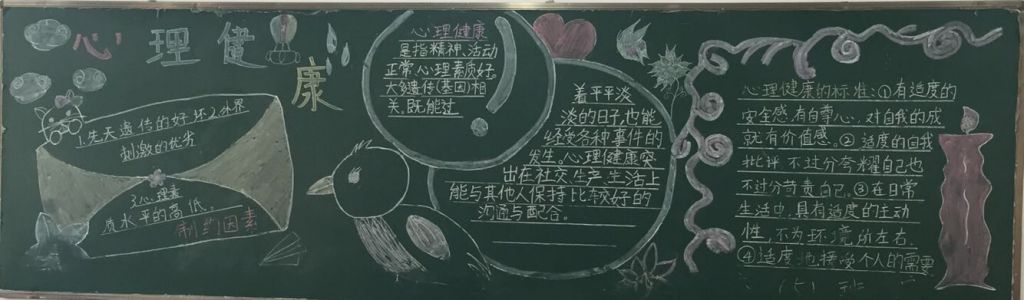 心理健康
1.先天遗传的好坏2.外界
刺激的优劣
3.心理素
质水平的高低。
制约因素
心理健康
是指精神、活动
正常、心理素质好.
大多遗传(基因)相
关,既能过
着平平淡
淡的日子,也能
经受各种事件的
发生。心理健康突
出在社交、生产、生活上
能与其他人保持比较好的
沟通与配合。
心理健康的标准:①有适度的
安全感,有自尊心、对自我的成
就有价值感。②适度的自我
批评不过分夸耀自己也
不过分苛责自己。③在日常
生活中,具有适度的主动
性,不为环境所左右.
④适度地接受个人的需要
(5)班